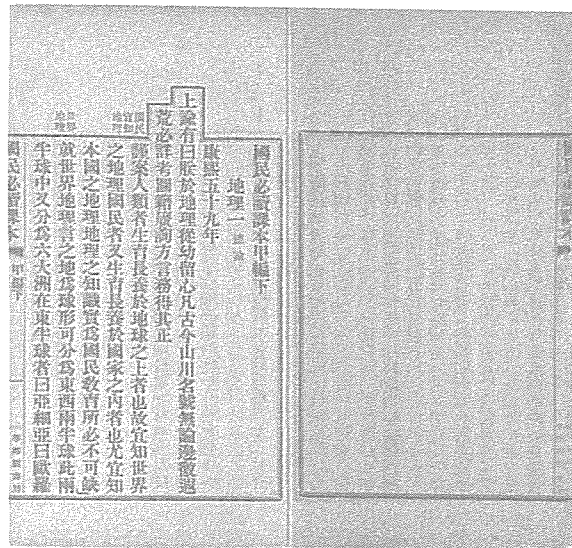 國民必讀課本甲編下
地理一 總論
康熙五十九年
上諭有曰朕於地理從幼留心凡古今山川名號無論邊徼遐
荒必詳考圖籍廣詢方言務得其正
國民
宜知
地理
謹案人類者生育長養於地球之上者也故宜知世界
之地理國民者又生育長養於國家之內者也尤宜知
本國之地理地理之知識實爲國民教育所必不可缺
世界
地理
就世界地理言之地爲球形可分爲東西兩半球此兩
半球中又分爲六大洲在東半球者曰亞細亞曰歐羅
國民必讀課本 甲編下